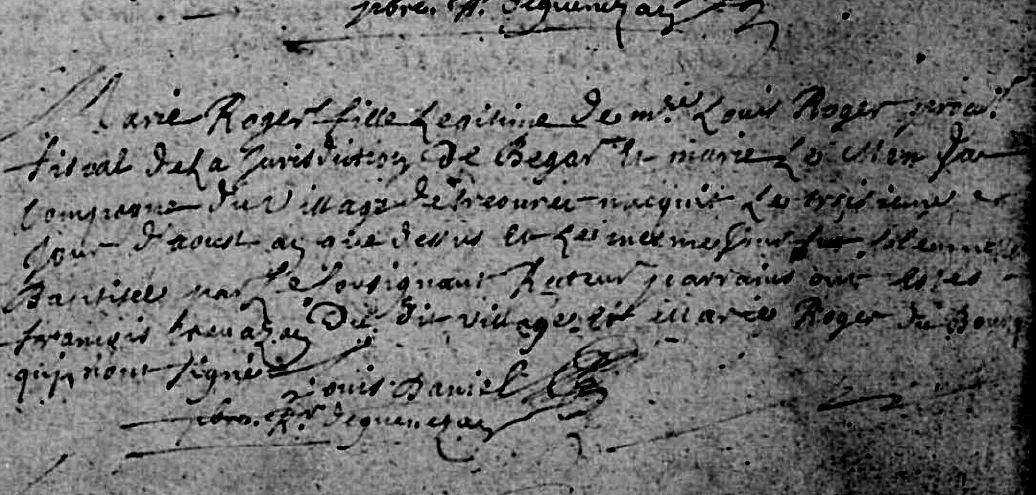 pbre. Rr. deguenezan
Marie Roger fille Legitime de mre Louis Roger procur
fiscal dela Jurisdiction de Begar et marie Le sa
Compagne du Village de nacquit Le troisieme
Jour d'aoust an que dessus et Le mesme Jour fut solemnel
Baptisee par Le soussignant Recteur parrains ont estes
françois du dit village et Marie Roger du Bourg
qui n'ont signé
Louis Daniel
pbre. Rr. deguenezan